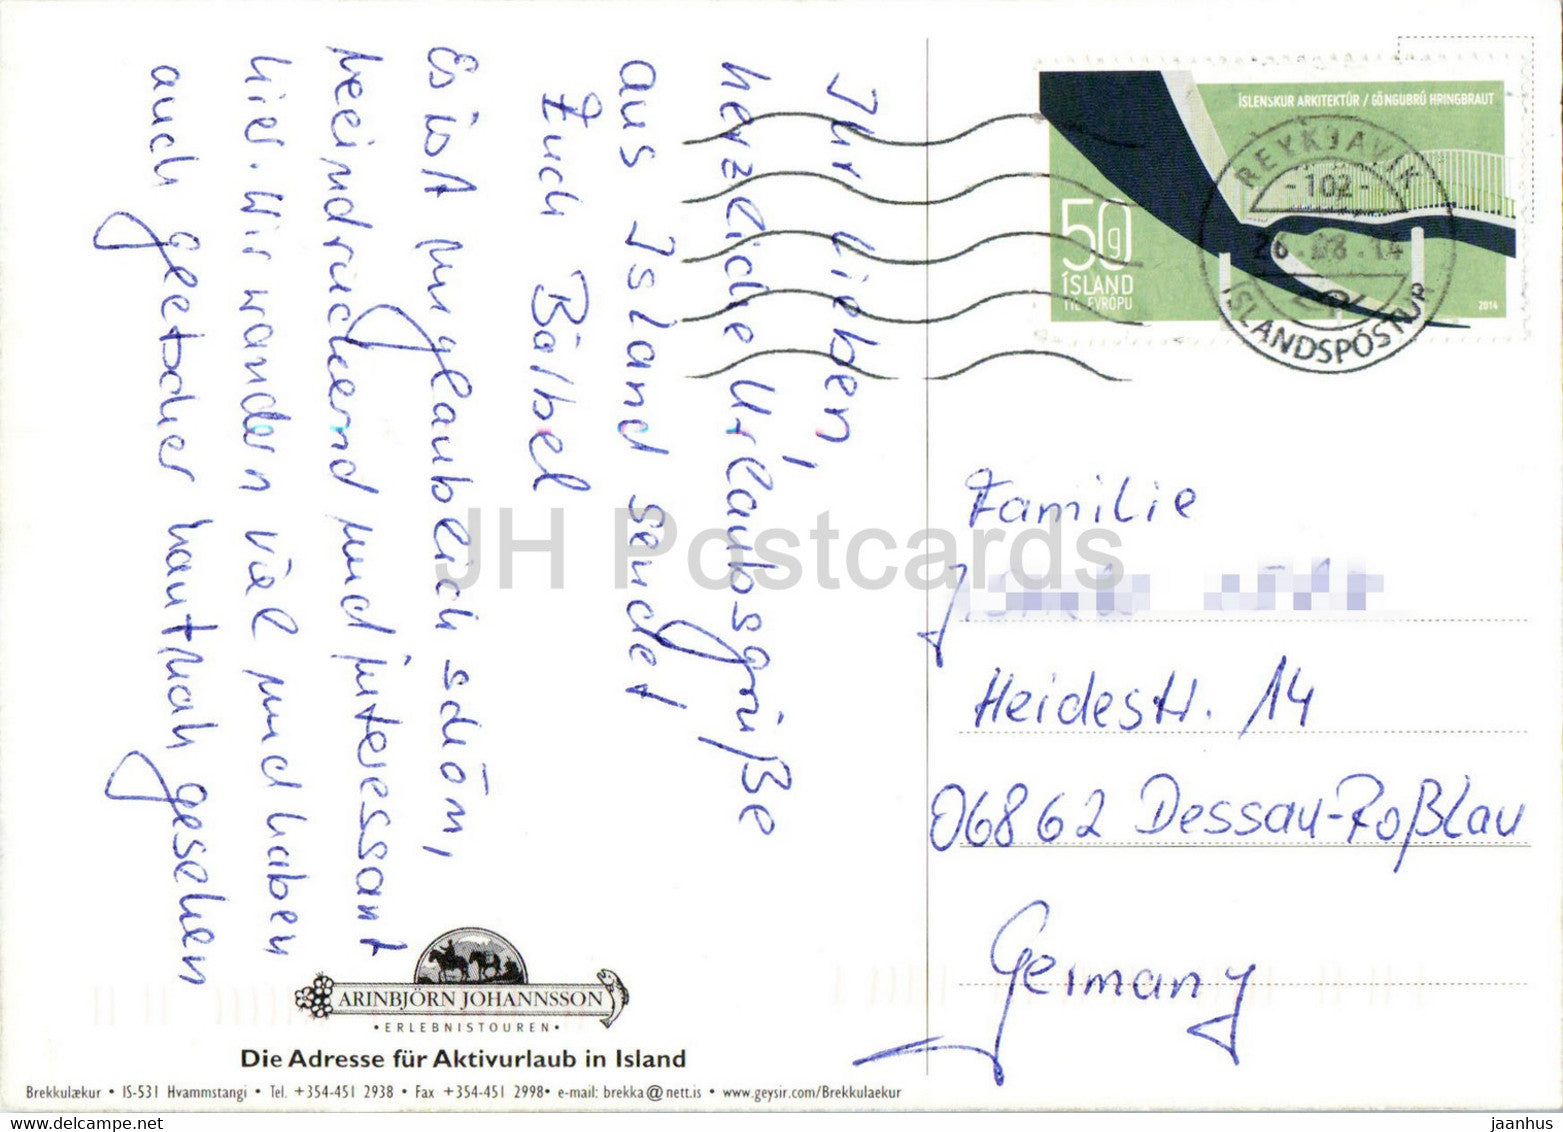 Ihr Lieben,
herzliche Urlaubsgrüße
aus Island sendet
Euch Bärbel
Es ist unglaublich schön,
beeindruckend und interessant
hier. Wir wandern viel und haben
auch Gletscher hautnah gesehen
ÍSLENSKUR ARKITEKTÚR / GÖNGUBRÚ HRINGBRAUT
50g
ÍSLAND
TIL EVRÓPU
2014
REYKJAVÍK
- 102 -
26 . 08 . 14
ÍSLANDSPÓSTUR
Familie
Heidestr. 14
06862 Dessau-Roßlau
Germany
JH Postcards
ARINBJÖRN JOHANNSSON
• ERLEBNISTOUREN •
Die Adresse für Aktivurlaub in Island
Brekkulækur • IS-531 Hvammstangi • Tel. +354-451 2938 • Fax +354-451 2998• e-mail: brekka@nett.is • www.geysir.com/Brekkulaekur
www.delcampe.net
jaanhus